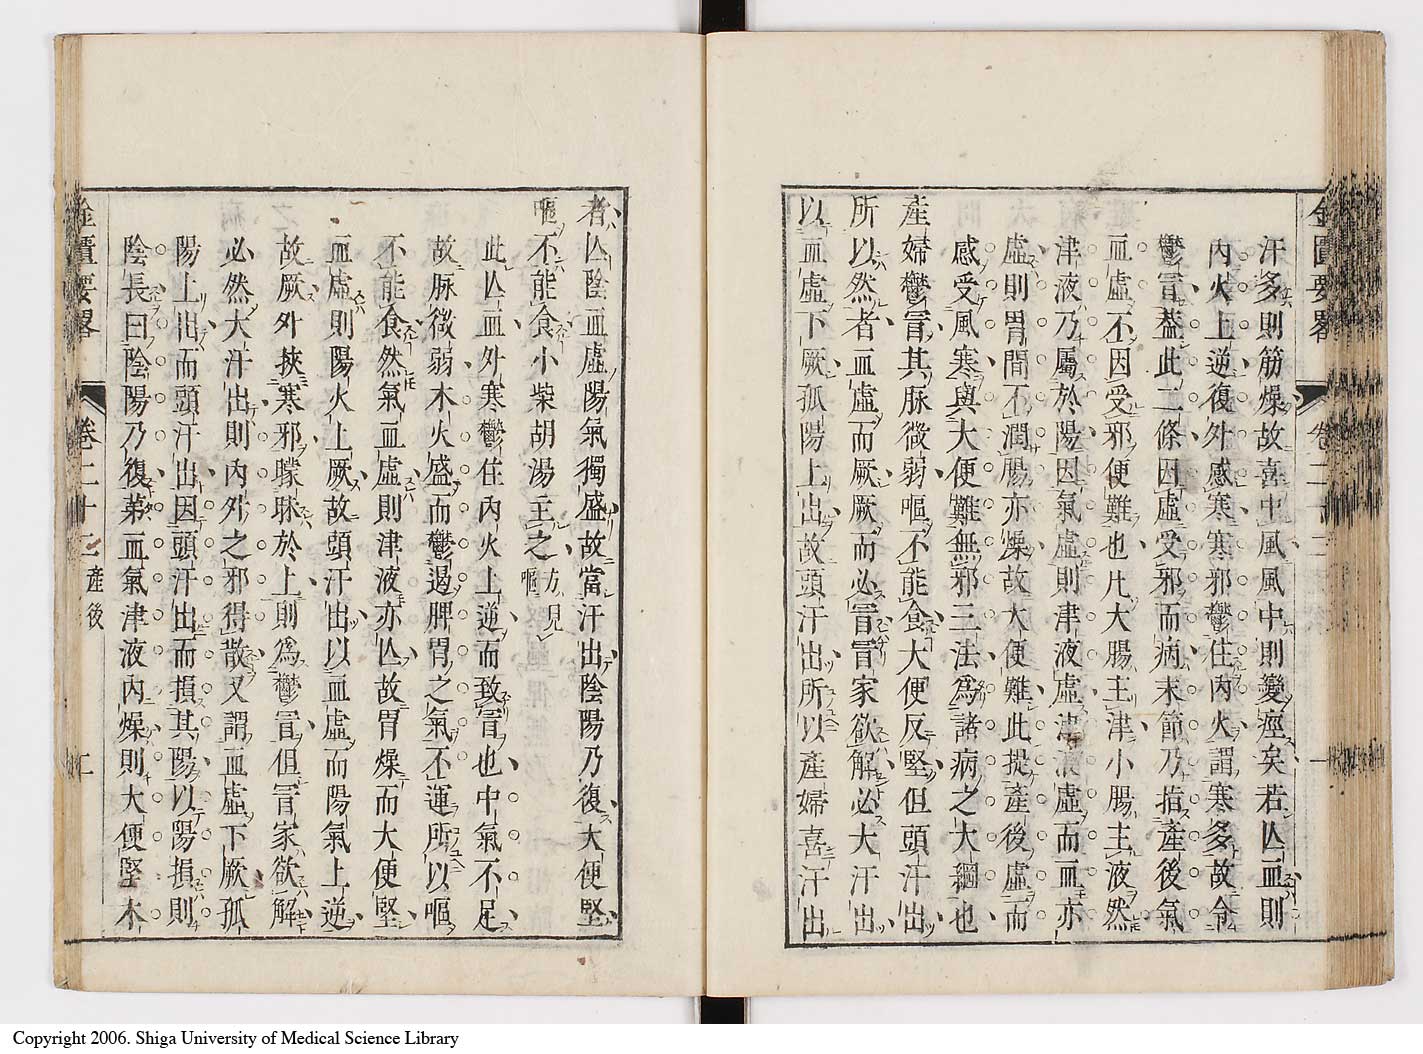 金匱要畧 卷二十二
汗多則筋燥故喜中風風中則變痙矣若亾血則
內火上逆復外感寒寒邪鬱住內火謂寒多故令
鬱冒葢此二條因虛受邪而病末節乃指產後氣
血虛不因受邪便難也凡大腸主津小腸主液然
津液乃屬於陽因氣虛則津液虛津液虛而血亦
虛則胃間不潤腸亦燥故大便難此提產後虛而
感受風寒與大便難無邪三法為諸病之大綱也
產婦鬱冒其脉微弱嘔不能食大便反堅但頭汗出
所以然者血虛而厥厥而必冒冒家欲解必大汗出
以血虛下厥孤陽上出故頭汗出所以產婦喜汗出
者亾陰血虛陽氣獨盛故當汗出陰陽乃復大便堅
嘔不能食小柴胡湯主之 方見嘔
此亾血外寒鬱住內火上逆而致冒也中氣不足
故脉微弱木火盛而鬱遏脾胃之氣不運所以嘔
不能食然氣血虛則津液亦亾故胃燥而大便堅
血虛則陽火上厥故頭汗出以血虛而陽氣上逆
故厥外挾寒邪矇眛於上則為鬱冒但冒家欲解
必然大汗出則內外之邪得散又謂血虛下厥孤
陽上出而頭汗出因頭汗出而損其陽以陽損則
陰長曰陰陽乃復苐血氣津液內燥則大便堅木
金匱要畧 卷二十二 產後